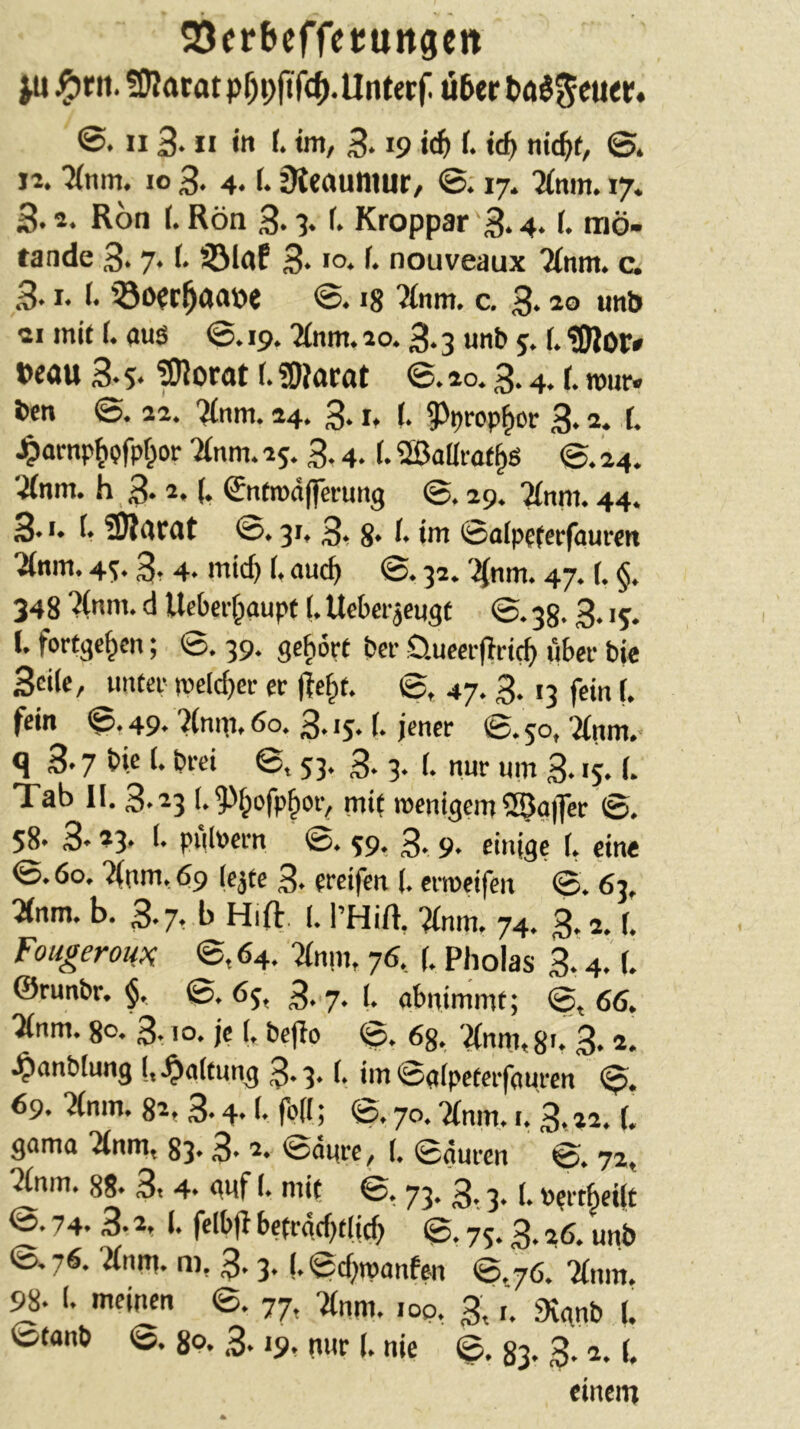 Verbesserungen
zu Hrn. Marat physisch. Unters. über das Feuer.
S. 11 Z. 11 in l. im, Z. 19 ich l. ich nicht, S.
12. Anm. 10 Z. 4. l. Reaumur, S. 17. Anm. 17.
Z. 2. Ron l. Rön Z. 3. l. Kroppar Z. 4. l. mö-
tande Z. 7. l. Blak Z. 10. l. nouveaux Anm. c.
Z. 1. l. Boerhaave S. 18 Anm. c. Z. 20 und
21 mit l. aus S. 19. Anm. 20. Z. 3 und 5. l. Mor-
veau Z. 5. Morat l. Marat S. 20. Z. 4. l. wur-
den S. 22. Anm. 24. Z. 1. l. Pyrophor Z. 2. l.
Harnphosphor Anm. 25. Z. 4. l. Wallraths S. 24.
Anm. h Z. 2. l. Entwässerung S. 29. Anm. 44.
Z. 1. l. Marat S. 31. Z. 8. l. im Salpetersauren
Anm. 45. Z. 4. mich l. auch S. 32. Anm. 47. l. §.
348 Anm. d Ueberhaupt l. Ueberzeugt S. 38. Z. 15.
l. fortgehen; S. 39. gehört der Queerstrich über die
Zeile, unter welcher er steht. S. 47. Z. 13 sein l.
fein S. 49. Anm. 60. Z. 15. l. jener S. 50, Anm.
q Z. 7 die l. drei S. 53. Z. 3. l. nur um Z. 15. l.
Tab II. Z. 23 l. Phosphor, mit wenigem Wasser S.
58. Z. 23. l. pülvern S. 59. Z. 9. einige l. eine
S. 60. Anm. 69 lezte Z. ereisen l. erweisen S. 63.
Anm. b. Z. 7. b Hist. l. l'Hist. Anm. 74. Z. 2. l.
Fougeroux S. 64. Anm. 76. l. Pholas Z. 4. l.
Grundr. §. S. 65. Z. 7. l. abnimmt; S. 66.
Anm. 80. Z. 10. je l. desto S. 68. Anm. 81. Z. 2.
Handlung l. Haltung Z. 3. l. im Salpetersauren S.
69. Anm. 82. Z. 4. l. soll; S. 70. Anm. 1. Z. 22. l.
gama Anm. 83. Z. 2. Säure, l. Säuren S. 72.
Anm. 88. Z. 4. auf l. mit S. 73. Z. 3. l. vertheilt
S. 74. Z. 2. l. selbst beträchtlich S. 75. Z. 26. und
S. 76. Anm. m. Z. 3. l. Schwanken S. 76. Anm.
98. l. meinen S. 77. Anm. 100. Z. 1. Rand l.
Stand S. 80. Z. 19. nur l. nie S. 83. Z. 2. l.
einem